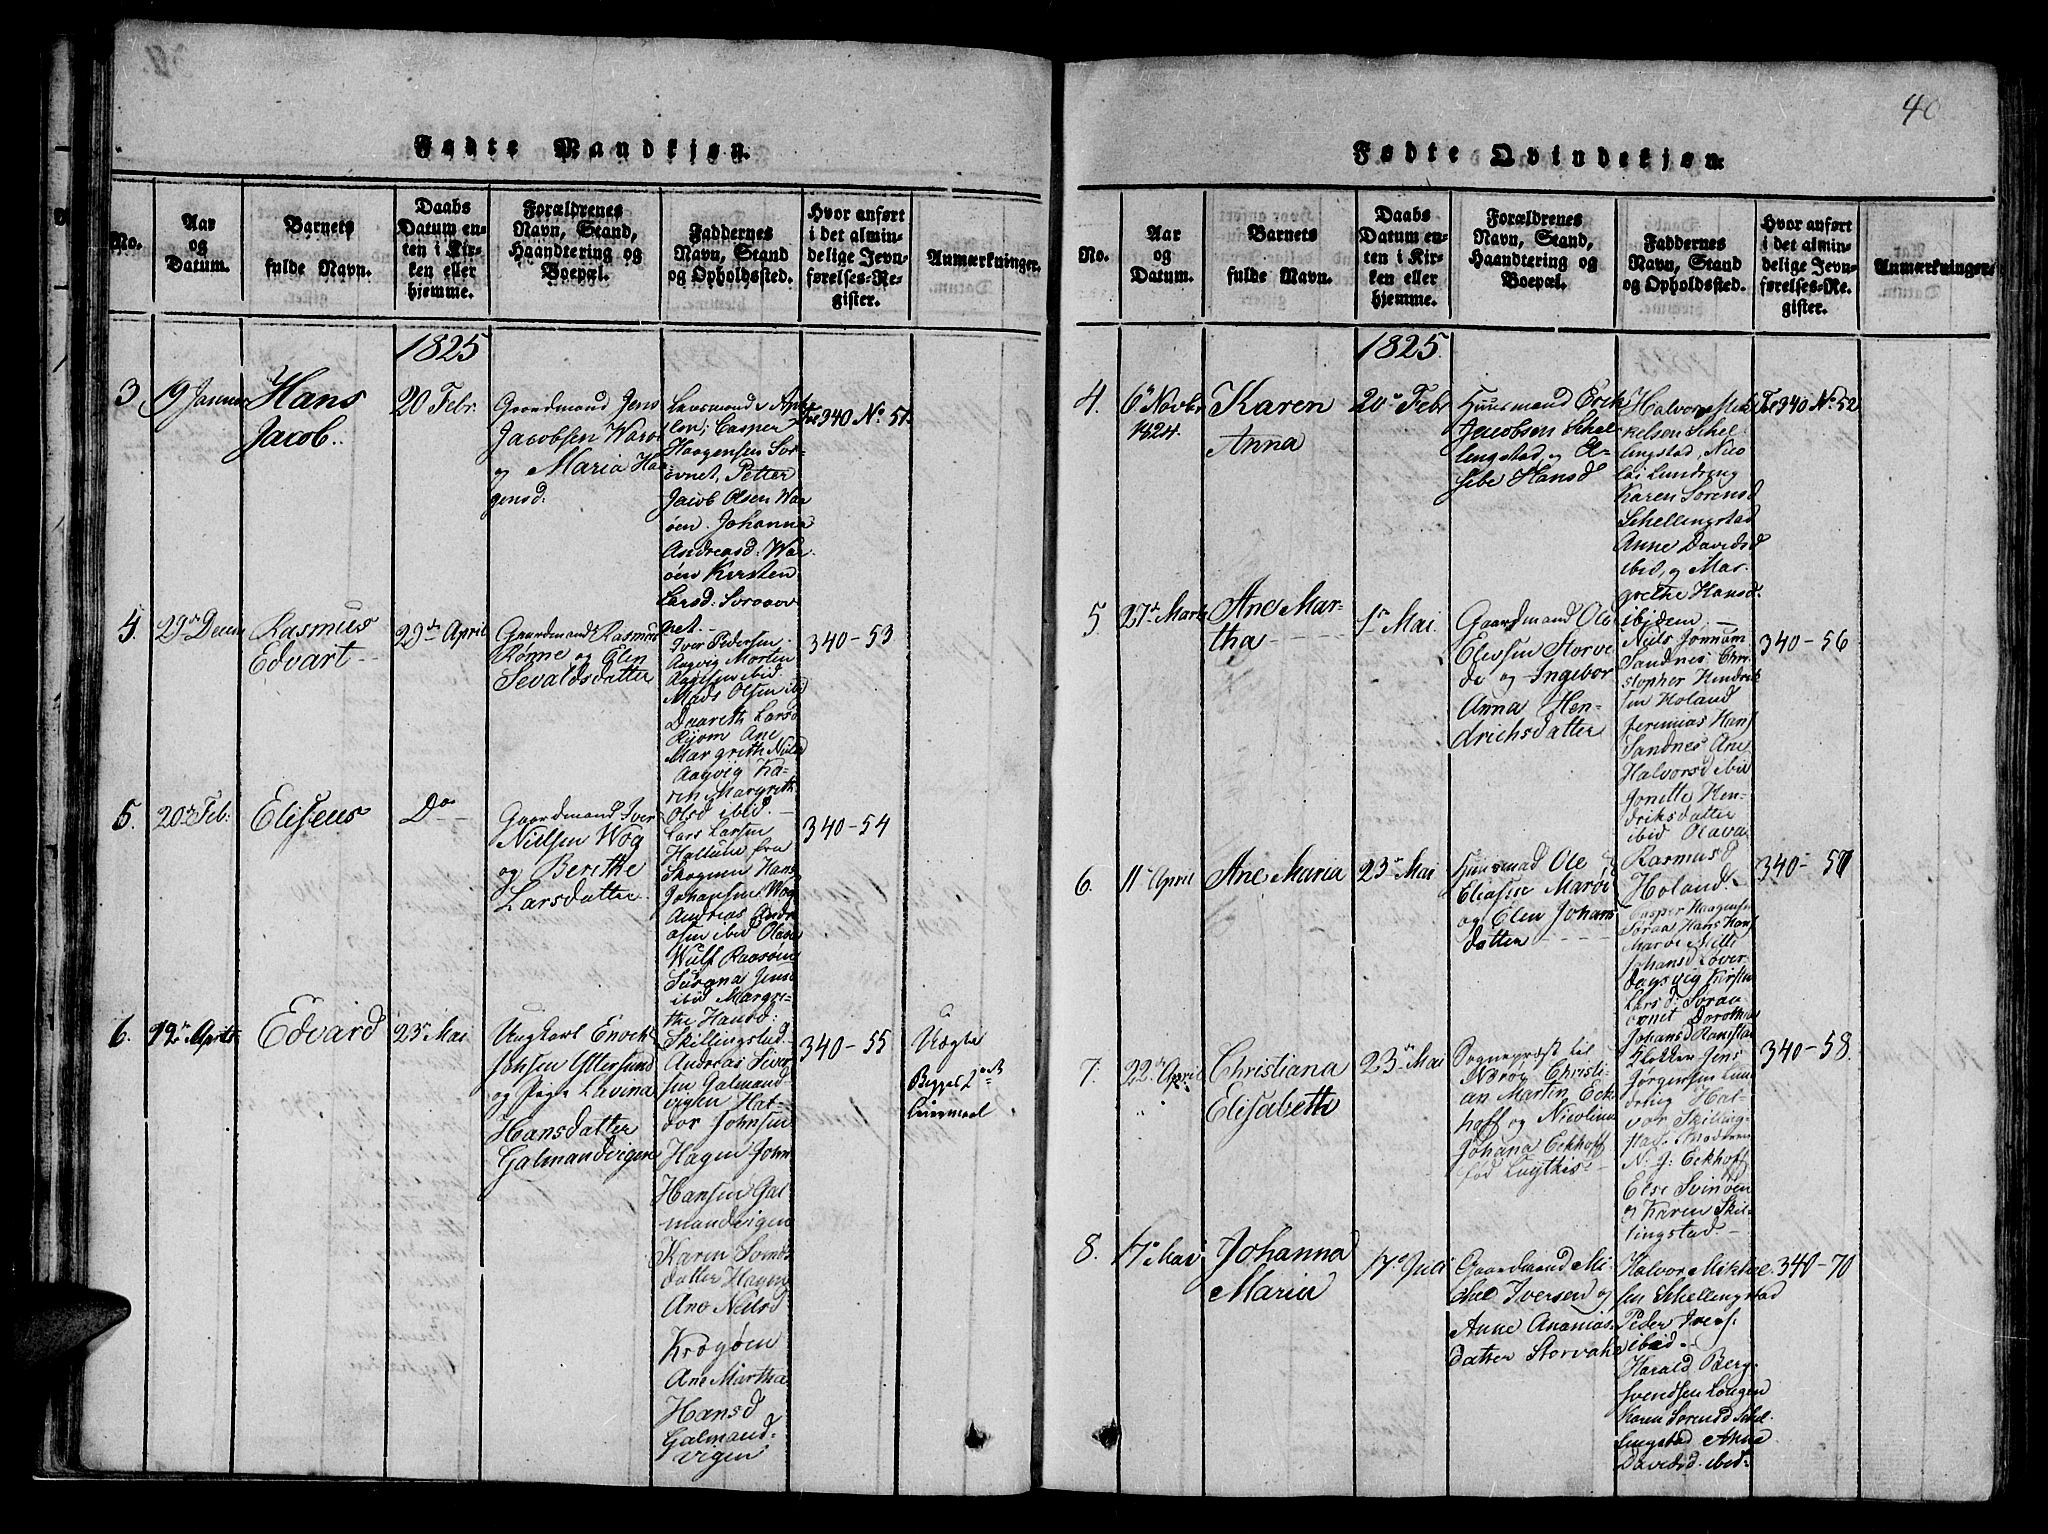 40
Fødte Mandkjøn.
No.
Aar
og
Datum.
Barnets
fulde Navn.
Daabs
Datum en-
ten i Kir-
ken eller
hjemme.
Forældrenes
Navn, Stand,
Haandtering og
Boepæl.
Faddernes
Navn, Stand
og Opholdssted.
Hvor anført
i det almin-
delige Jevn-
førelses-Re-
gister.
Anmærkninger.
1825
3
19 Januar
Hans
Jacob.
20 Febr.
Gaardmand Jens
Jacobsen
og Maria Haa
gensd:
Casper
Haagensen Sor-
ovnet, Petter
Jacob Olsen Wa
øen. Johanna
Andreasd: Wa
øen Kirsten
Larsd: Soraaov
net
340 No. 51
4.
29de Decem
Rasmus
Edvart
29de April
Gaardmand Rasmus
Rønne og Elen
Sevaldsdatter
Iver Pedersen
Aagvig Morten
Aagesen ibid
Mads Olsen ibid
Daareth Larsd
Ryom Ane
Margrith Nielsd
Aagvig Ka-
ren Margreth
Olsd ibid
340-53
5.
20de Feb:
Eliseus
Do
Gaardmand Iver
Nielsen Wog
og Berithe
Larsdatter
Lars Larsen
fra
Skognen Hans
Johansen Wog
Andreas Andr
osen ibid Olava
Wulf Raasøen
Susana Jens
ibid Margre-
the Hansd:
Skillingstad
340-54
6.
12te April
Edvard
23de Mai
Ungkarl Enoch
Johsen Yttersund
og Pige Lavina
Hansdatter
Galmandvigen
Andreas Siver
sen Galmand-
vigen Hal-
dor Johnsen
Hagen John
Hansen Gal
mandvigen
Karen Svends
datter Hagen
Ane Nielsd
Krogøen
Ane Martha
Hansd
Galmand-
vigen
340-55
Uægte
Begges 2det
Leiermaal
Fødte Qvindekjøn.
No.
Aar
og
Datum.
Barnets
fulde Navn.
Daabs
Datum en-
ten i Kir-
ken eller
hjemme.
Forældrenes
Navn, Stand,
Haandtering og
Boepæl.
Faddernes
Navn, Stand
og Opholdssted.
Hvor anført
i det almin-
delige Jevn-
førelses-Re-
gister.
Anmærkninger.
1825.
4.
6te Novbr
1824.
Karen
Anna
20de Febr
Huusmand Erik
Jacobsen Schel
lengstad og El-
sebe Hansd
Halvor Mik
kelsen Schel
lingstad, Nico
lai Lundring
Karen Sorensd
Schellingstad
Anne Davidsd
ibid, og Mar-
grethe Hansd.
ibidem.
340 No. 52
5.
27de Marts
Ane Mar-
tha
1ste Mai.
Gaardmand Ole
Elevsen Storve
de og Ingebor
Anna Hen-
drichsdatter
Niels Jonnum
Sandnes Chri-
stopher Hendrik
sen Holand
Jeremias Hans
Sandnes Ane
Halvorsd ibid
Jonette Hen-
driksdatter
ibid Olava
Rasmusd
Holand
340-56
6.
11te April
Ane Maria
23de Mai
Huusmad Ole
Eliasen Marøe
og Elen Johans
datter
Casper Haagensen
Soraa Hans Hans
Marøe Mille
Johansd Løver-
dagsvig Kirsten
Larsd: Soraa
ovnet Dorothea
Johansd Ramstad
340-57
7.
22de April
Christiana
Elisabeth
23de Mai
Sognepræst til
Nærøe Christi-
an Martin Eck
hoff og Nicolina
Johana Eckhoff
fød Lugthis
Klokker Jens
Jørgensen Lun
dring Hal-
vor Skilling-
stad. Moderen
N. J: Eckhoff
Else Svinøen
og Karen Skil-
lingstad.
340-58.
8.
17de Mai
Johanna
Maria
17de Juli
Gaardmand Mi-
chel Iversen og
Anne Ananias-
datter Storvahl
Halvor Mikkel
sen Schellingstad
Peder Ivers.
ibid.
Harald Berg-
svendsen Longen
Karen Sørensd Schel-
lingstad Anne
Davidsd. ibid.
340-70